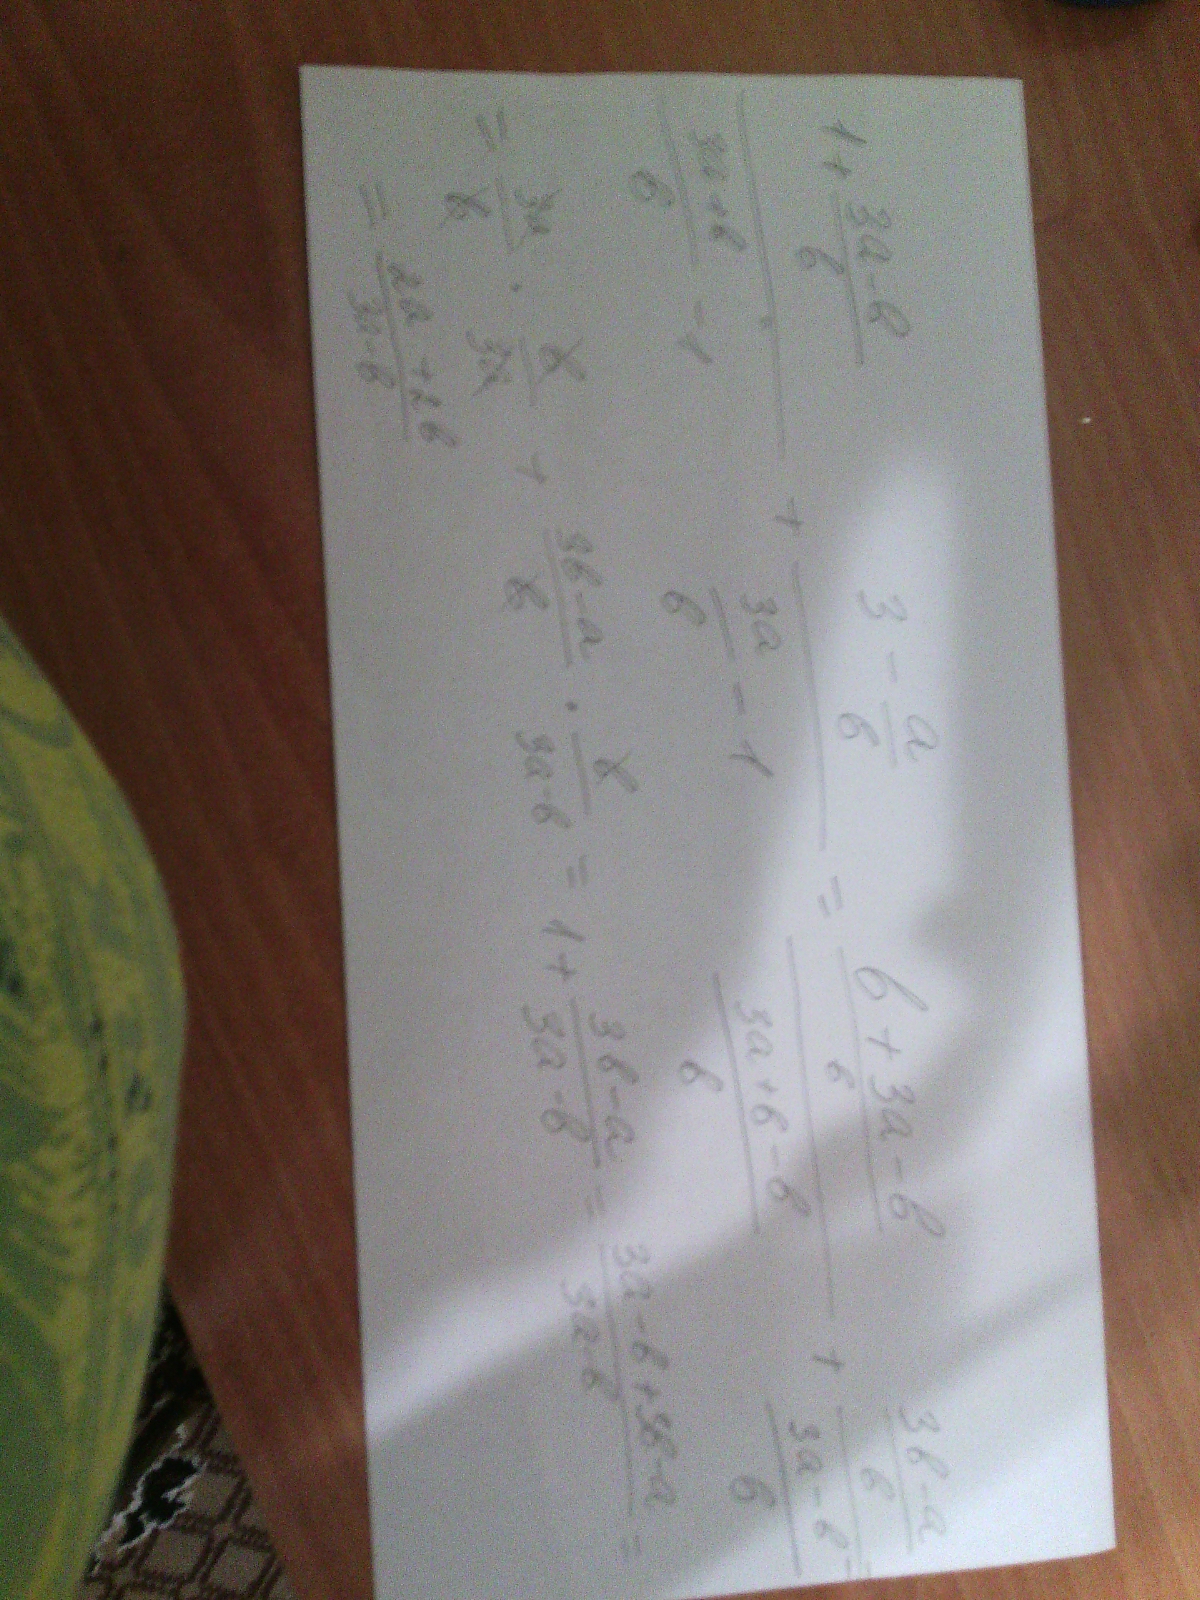 1 + (3a - b)/b / ((3a + b)/b - 1) + (3 - a/b) / (3a/b - 1) = (b + 3a - b)/b / ((3a + b - b)/b) + (3b - a)/b / ((3a - b)/b) =
= 3a/b · b/3a + (3b - a)/b · b/(3a - b) = 1 + (3b - a)/(3a - b) = (3a - b + 3b - a)/(3a - b) =
= (2a + 2b)/(3a - b)